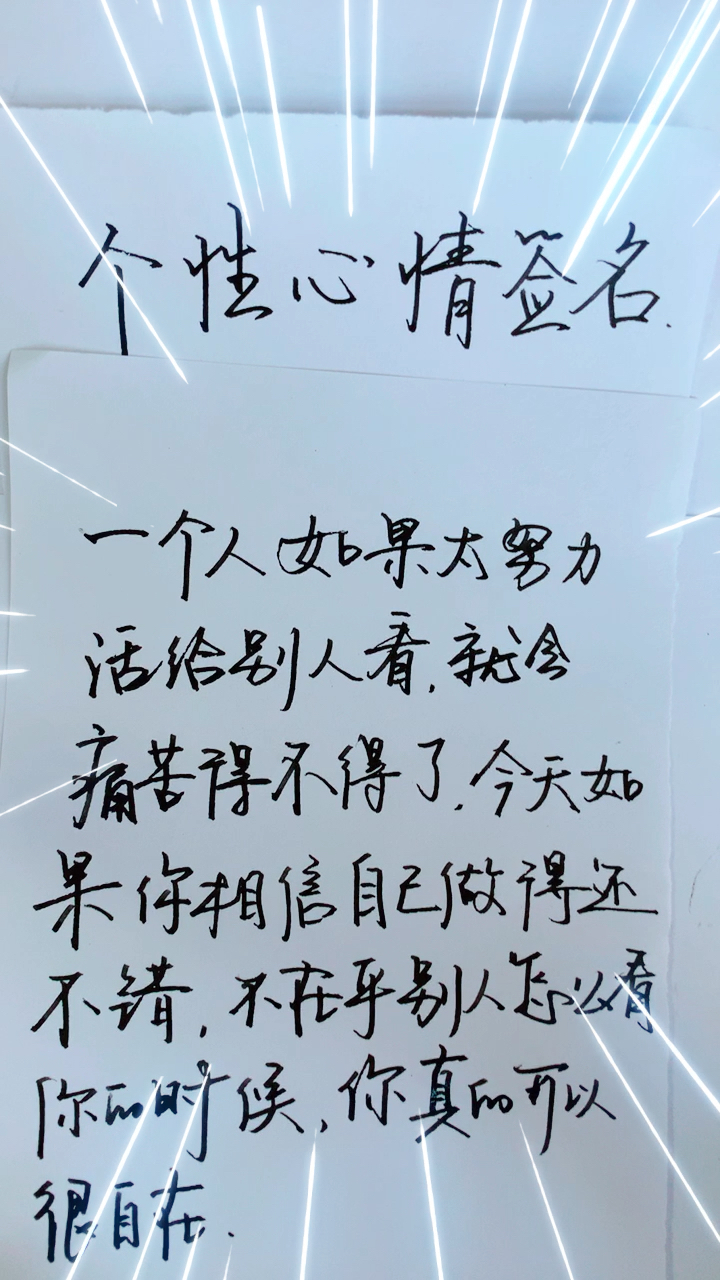 个性心情签名.
一个人如果太努力
活给别人看,就会
痛苦得不得了.今天如
果你相信自己做得还
不错,不在乎别人怎么看
你的时候,你真的可以
很自在.